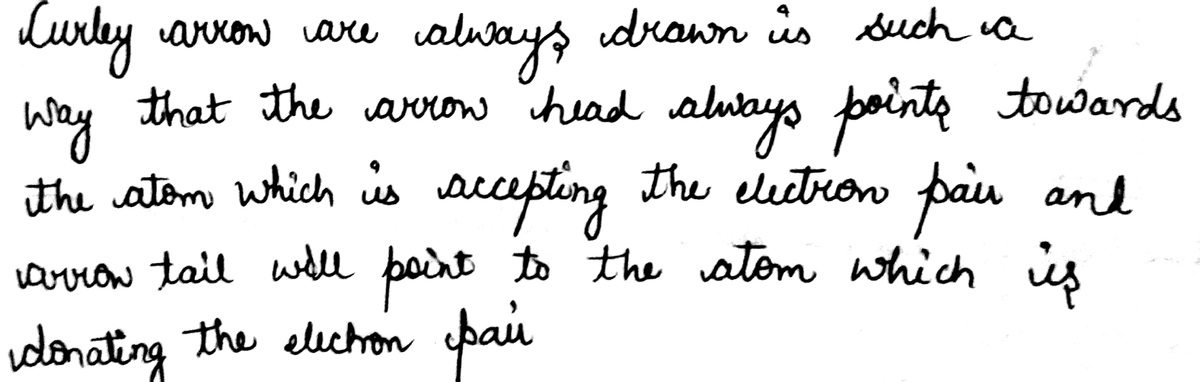 Curley arrow are always drawn is such a
way that the arrow head always points towards
the atom which is accepting the electron pair and
arrow tail will point to the atom which is
donating the electron pair